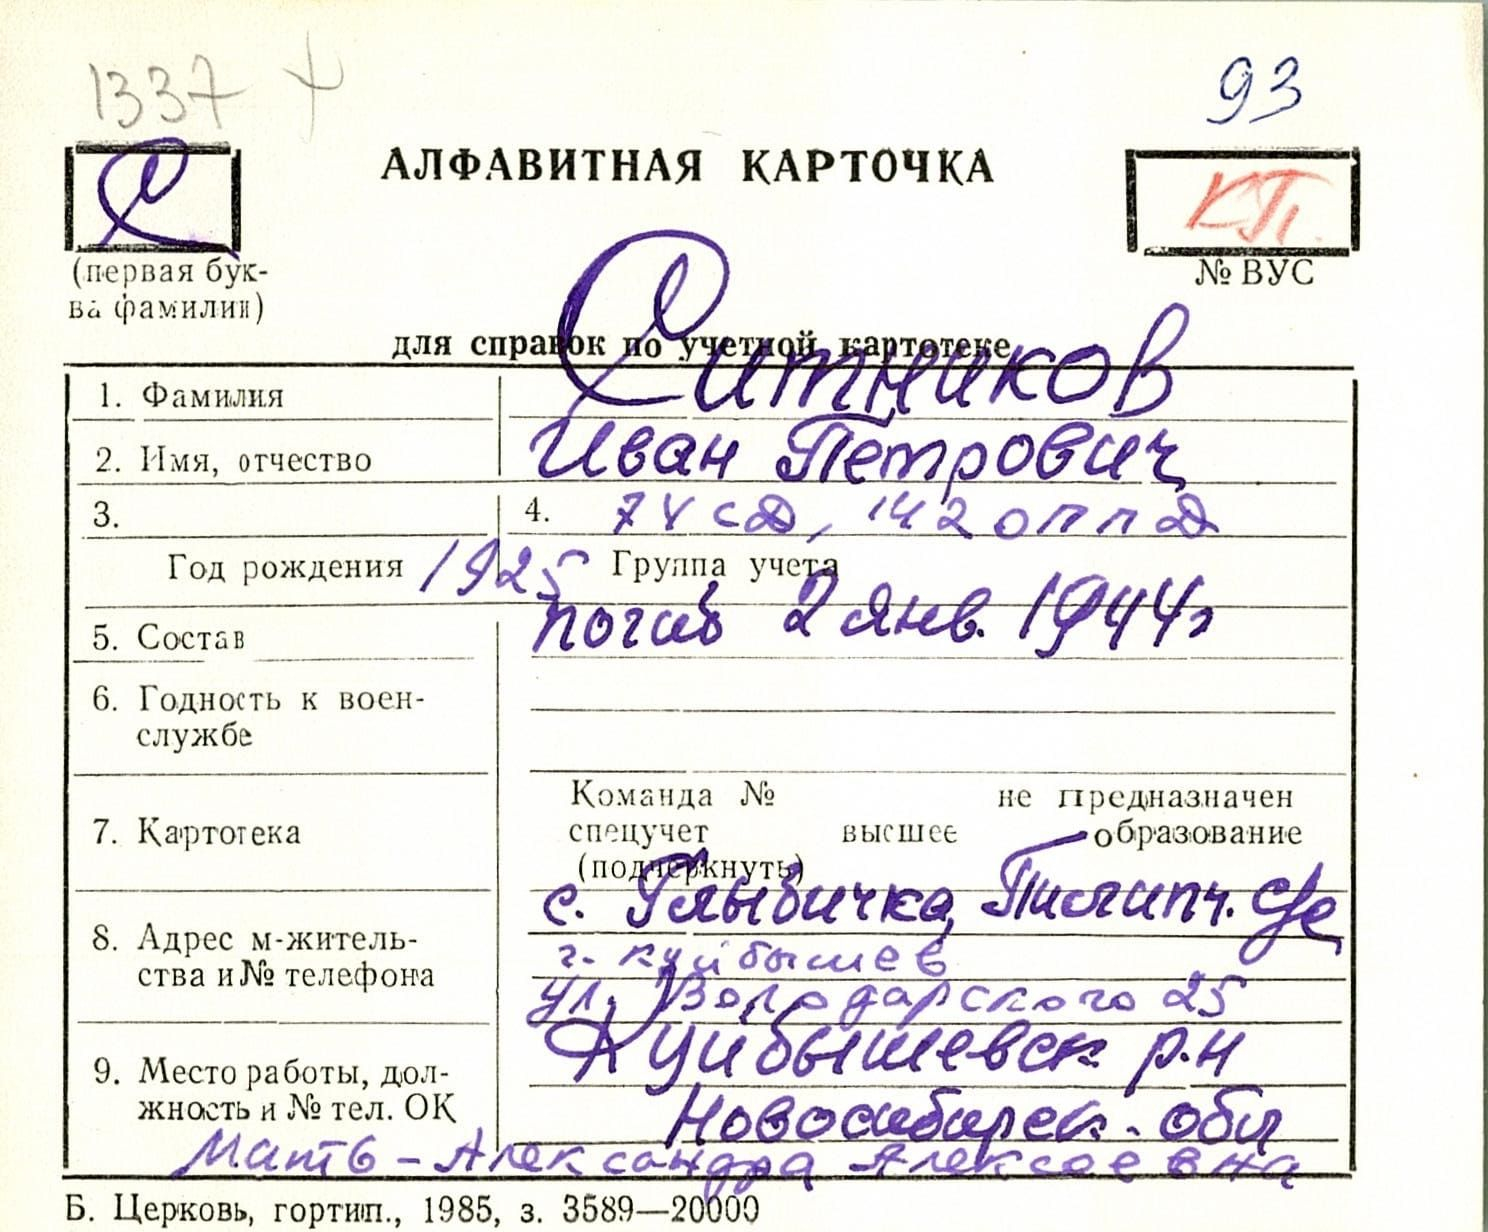 1337
93
С
АЛФАВИТНАЯ КАРТОЧКА
КП.
(первая бук-
ва фамилии)
№ ВУС
для справок по учетной картотеке
1. Фамилия Ситников
2. Имя, отчество Иван Петрович
3. 4. 74 сд, 142 оппд
Год рождения 1925 Группа учета
5. Состав погиб 2 янв. 1944г
6. Годность к воен-
службе
Команда № не предназначен
7. Картотека спецучет высшее образование
(подчеркнуть)
с. Глыбичка,
8. Адрес м-житель-
ства и № телефона
г. Куйбышев
ул. Володарского 25
Куйбышевск р-н
9. Место работы, дол-
жность и № тел. ОК
Новосибирск. обл
Мать - Александра Алексеевна
Б. Церковь, гортип., 1985, з. 3589—20000